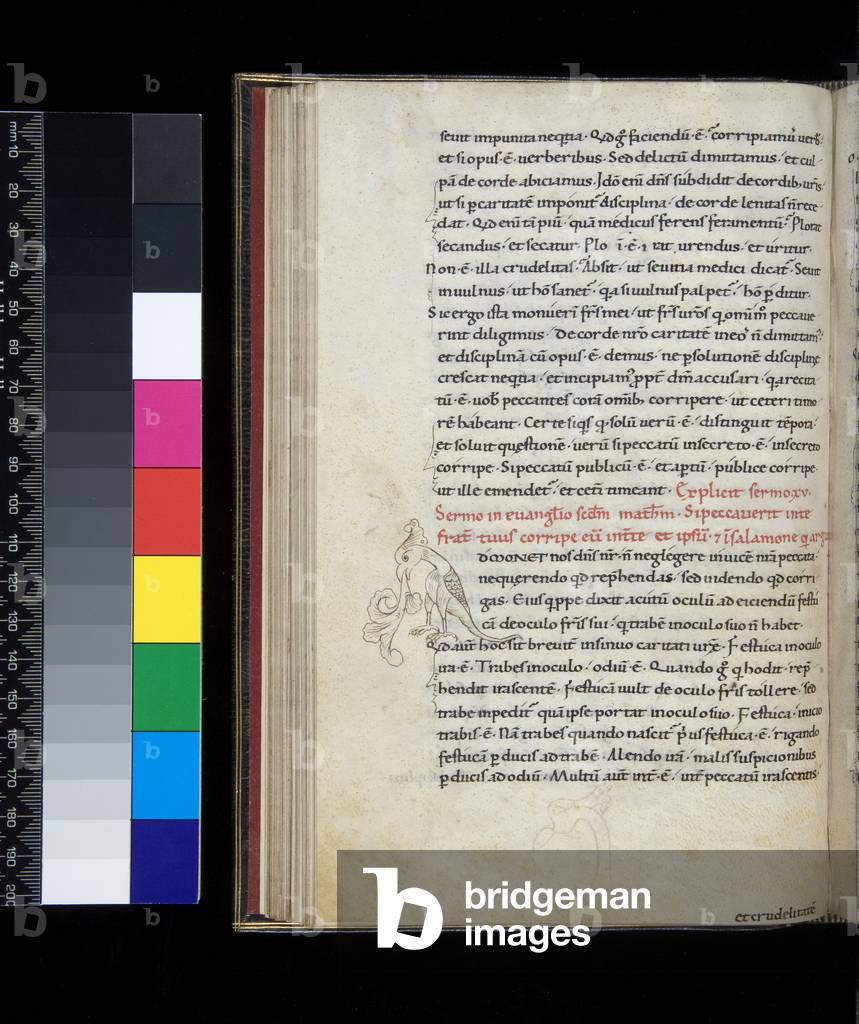 seuit impunita neq̃tia · Qd g̊ faciendũ · ẽ · corripiamꝰ uerb̃·
et si opus · ẽ · uerberibus · Sed delictũ dimittamus · et cul-
pã de corde abiciamus · Ideo eni dñs subdidit de cordib; uris
ut si p caritatẽ imponit᷒ disciplina · de corde lenitas ñ rece-
dat · Qd eni tã piũ · quã medicus ferens feramentũ · Plorat
secandus · et secatur · Plo rat urendus · et uritur ·
Non · ẽ · illa crudelitas · Absit · ut seuitia medici dicat᷒ · Seuit
in uulnus · ut hõ sanet᷒ · q̃a si uulnus palpet᷒ · hõ pditur ·
Sic ergo ista monuerĩ fr̃s mei · ut fr̃s ur̃os q̃ omnĩ peccaue-
rint diligimus · De corde nr̃o caritatẽ in eos ñ dimittam᷒·
et disciplinã cũ opus · ẽ · demus · ne p solutionẽ disciplinę
crescat neq̃tia · et incipiamꝰ ppt̃ dm̃ accusari · q̃a recita
tũ · ẽ · uob̃ peccantes corã omib; corripere · ut ceteri timo
rẽ habeant · Certe siq̃s q̃ solũ uerũ · ẽ · distinguit tẽpora ·
et soluit quęstionẽ · uerũ si peccatũ in secreto · ẽ · in secreto
corripe · Si peccatũ publicũ · ẽ · et aptũ · publice corripe ·
ut ille emendet᷒ · et cet̃i timeant · Explicit sermo xv ·
Sermo in euanglio scdm mathm · Si peccauerit in te
frat̃ tuus corripe eũ int̃ te et ipsũ · ⁊ ĩ salamone
DMONET nos dñs nr̃ · ñ neglegere inuicẽ nr̃a peccata ·
ne querendo qd rep̃hendas · sed uidendo qd corri
gas · Eius q̃ppe dixit acutũ oculũ ad eiciendũ festu
cã de oculo fr̃is sui · q̃ trabẽ in oculo suo ñ habet ·
Qd aut̃ hoc sit breuit̃ insinuo caritati urẽ · Festuca in oculo
ira · ẽ · Trabes in oculo · odiũ · ẽ · Quando g̊ q̃ hodit · rep̃
hendit irascentẽ · Festucã uult de oculo fr̃is tollere · sed
trabe inpedit᷒ quã ipse portat in oculo suo · Festuca · inicio
trabis · ẽ · Nã trabes quando nascit᷒ p̃us festuca · ẽ · rigando
festucã pducis ad trabẽ · Alendo irã · malis suspicionibus
pducis ad odiũ · Multũ aut̃ int̃ · ẽ · int̃ peccatũ irascentis ·
et crudelitatẽ
mm 10
20
30
40
50
60
70
80
90
100
110
120
130
140
150
160
170
180
190
200
b bridgeman
images